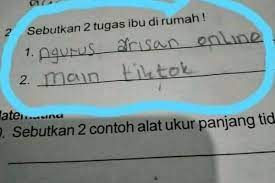 2. Sebutkan 2 tugas ibu di rumah !
1. ngurus arisan online
2. main tiktok
Sebutkan 2 contoh alat ukur panjang tid